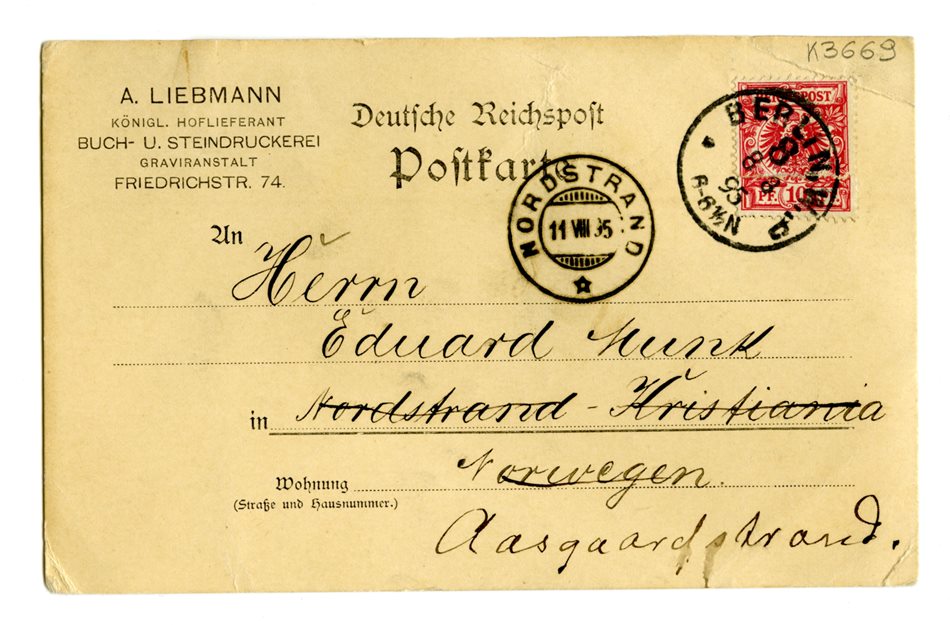 K3669
A. LIEBMANN
KÖNIGL. HOFLIEFERANT
BUCH- U. STEINDRUCKEREI
GRAVIRANSTALT
FRIEDRICHSTR. 74.
Deutsche Reichspost
Postkarte
REICHSPOST
10 PF.
BERLIN W.
8
8 8 95
6-6½N
NORDSTRAND
11 VIII 95
An
Herrn
Eduard Munk
in Nordstrand - Kristiania
Norwegen.
Wohnung
(Straße und Hausnummer.)
Aasgaardstrand.